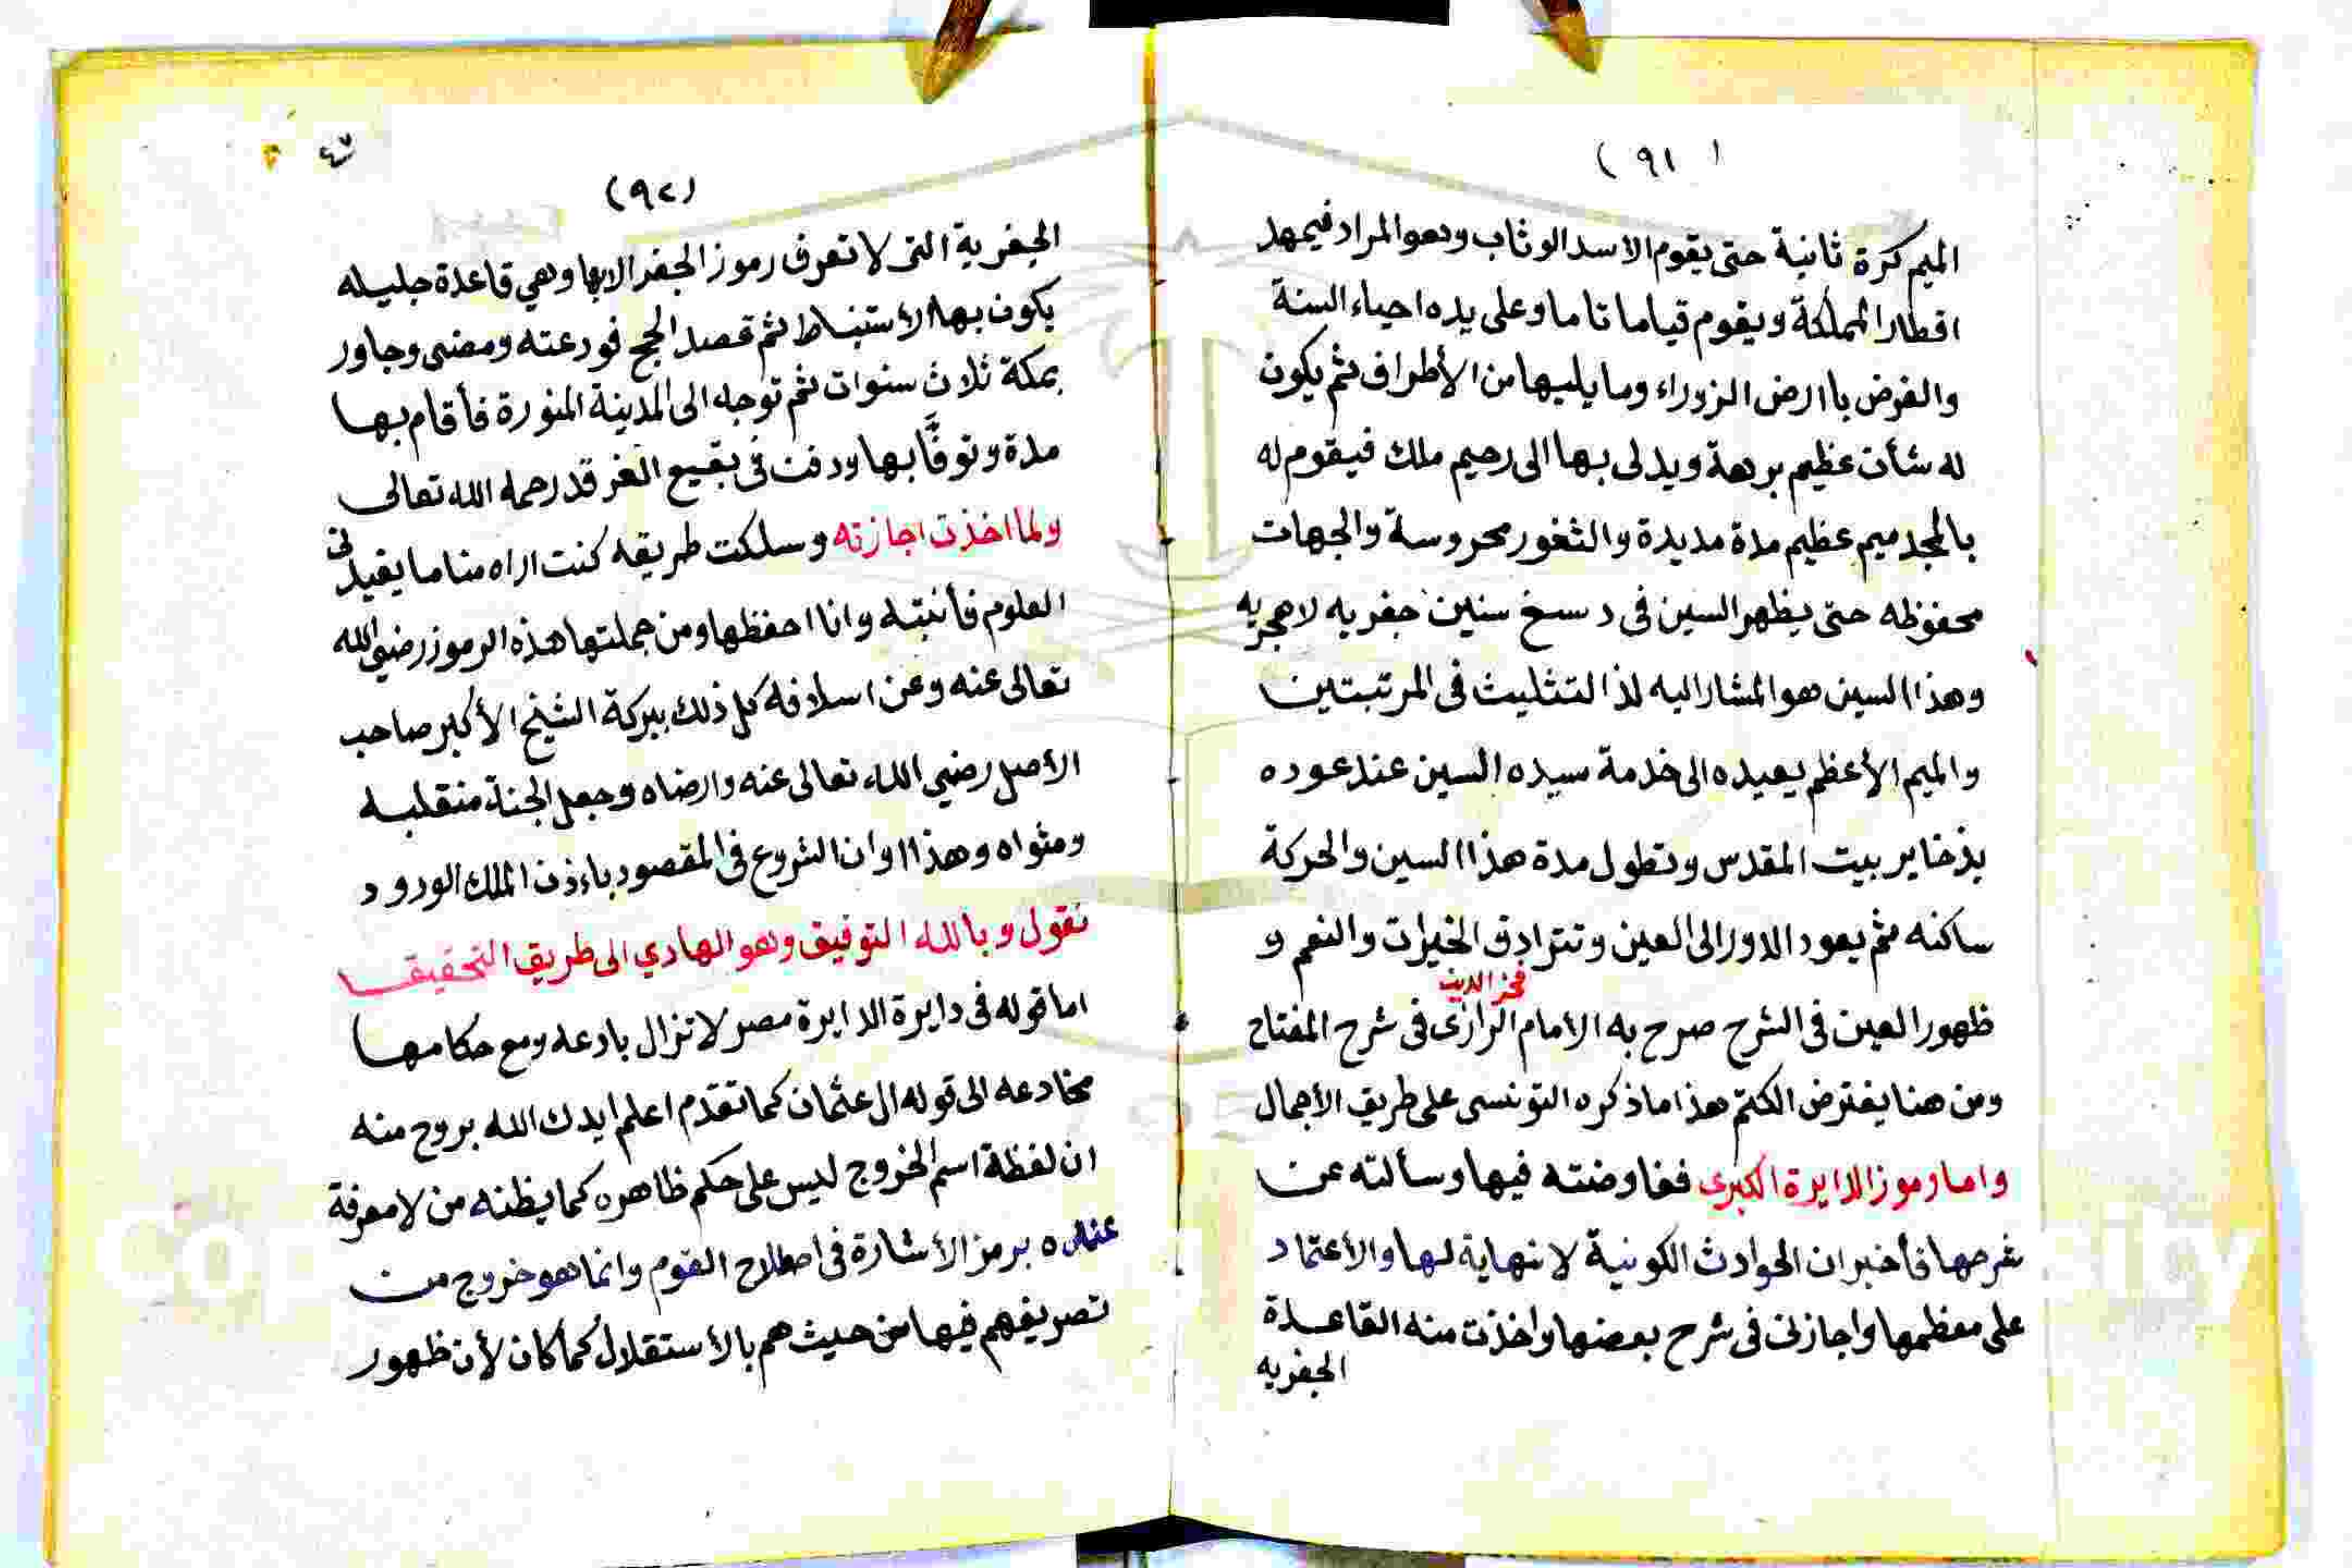 ( ٩١ )
الميم كرة ثانية حتى يقوم الاسد الوثاب وهو المراد فيمهد
اقطار المملكة ويقوم قياما تاما وعلى يده احياء السنة
والفرض باارض الزوراء وما يليها من الأطراف ثم يكون
له شأن عظيم برهة ويدلى بها الى رحيم ملك فيقوم له
بالمجد ميم عظيم مدة مديدة والثغور محروسة والجهات
محفوظه حتى يظهر السين فى د سخ سنين جفريه لا هجريه
وهذا السين هو المشار اليه لذا لتثليث فى المرتبتين
والميم الأعظم يعيده الى خدمة سيده السين عند عوده
بذخاير بيت المقدس وتطول مدة هذا السين والحركة
ساكنه ثم يعود الدور الى العين وتترادف الخيرات والنعم و
ظهور العين فى الشرح صرح به الامام فخر الدين الرازى فى شرح المفتاح
ومن هنا يفترض الكتم هذا ما ذكره التونسى على طريق الأجمال
واما رموز الدايرة الكبرى ففاوضته فيها وسألته عن
شرحها فأخبر ان الحوادث الكونية لا نهاية لها والأعتماد
على معظمها واجازنى فى شرح بعضها واخذت منه القاعدة
الجفريه
(٩٢)
الجفرية التى لا تعرف رموز الجفر الا بها وهي قاعدة جليله
يكون بها الأستنباط ثم قصد الحج فودعته ومضى وجاور
بمكة ثلاث سنوات ثم توجه الى المدينة المنورة فأقام بها
مدة وتوفَّا بها ودفن فى بقيع الغرقد رحمه الله تعالى
ولما اخذت اجازته وسلكت طريقه كنت اراه مناما يفيدنى
العلوم فأنتبه وانا احفظها ومن جملتها هذه الرموز رضي الله
تعالى عنه وعن اسلافه كل ذلك ببركة الشيخ الأكبر صاحب
الأصل رضي الله تعالى عنه وارضاه وجعل الجنة منقلبه
ومثواه وهذا اوان الشروع فى المقصود باءذن الملك الودود
نقول وبالله التوفيق وهو الهادي الى طريق التحقيق
اما قوله فى دايرة الدايرة مصر لا تزال بادعه ومع حكامها
مخادعه الى قوله ال عثمان كما تقدم اعلم ايدك الله بروح منه
ان لفظة اسم الخروج ليس على حكم ظاهره كما يظنه من لا معرفة
عنده برمز الأشارة فى اصطلاح القوم وانما هو خروج من
تصريفهم فيها من حيث هم بالأستقلال كما كان لأن ظهور